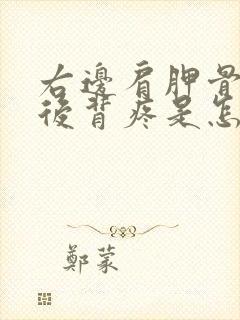 右邊肩胛骨
後背疼是怎
鄭蒙